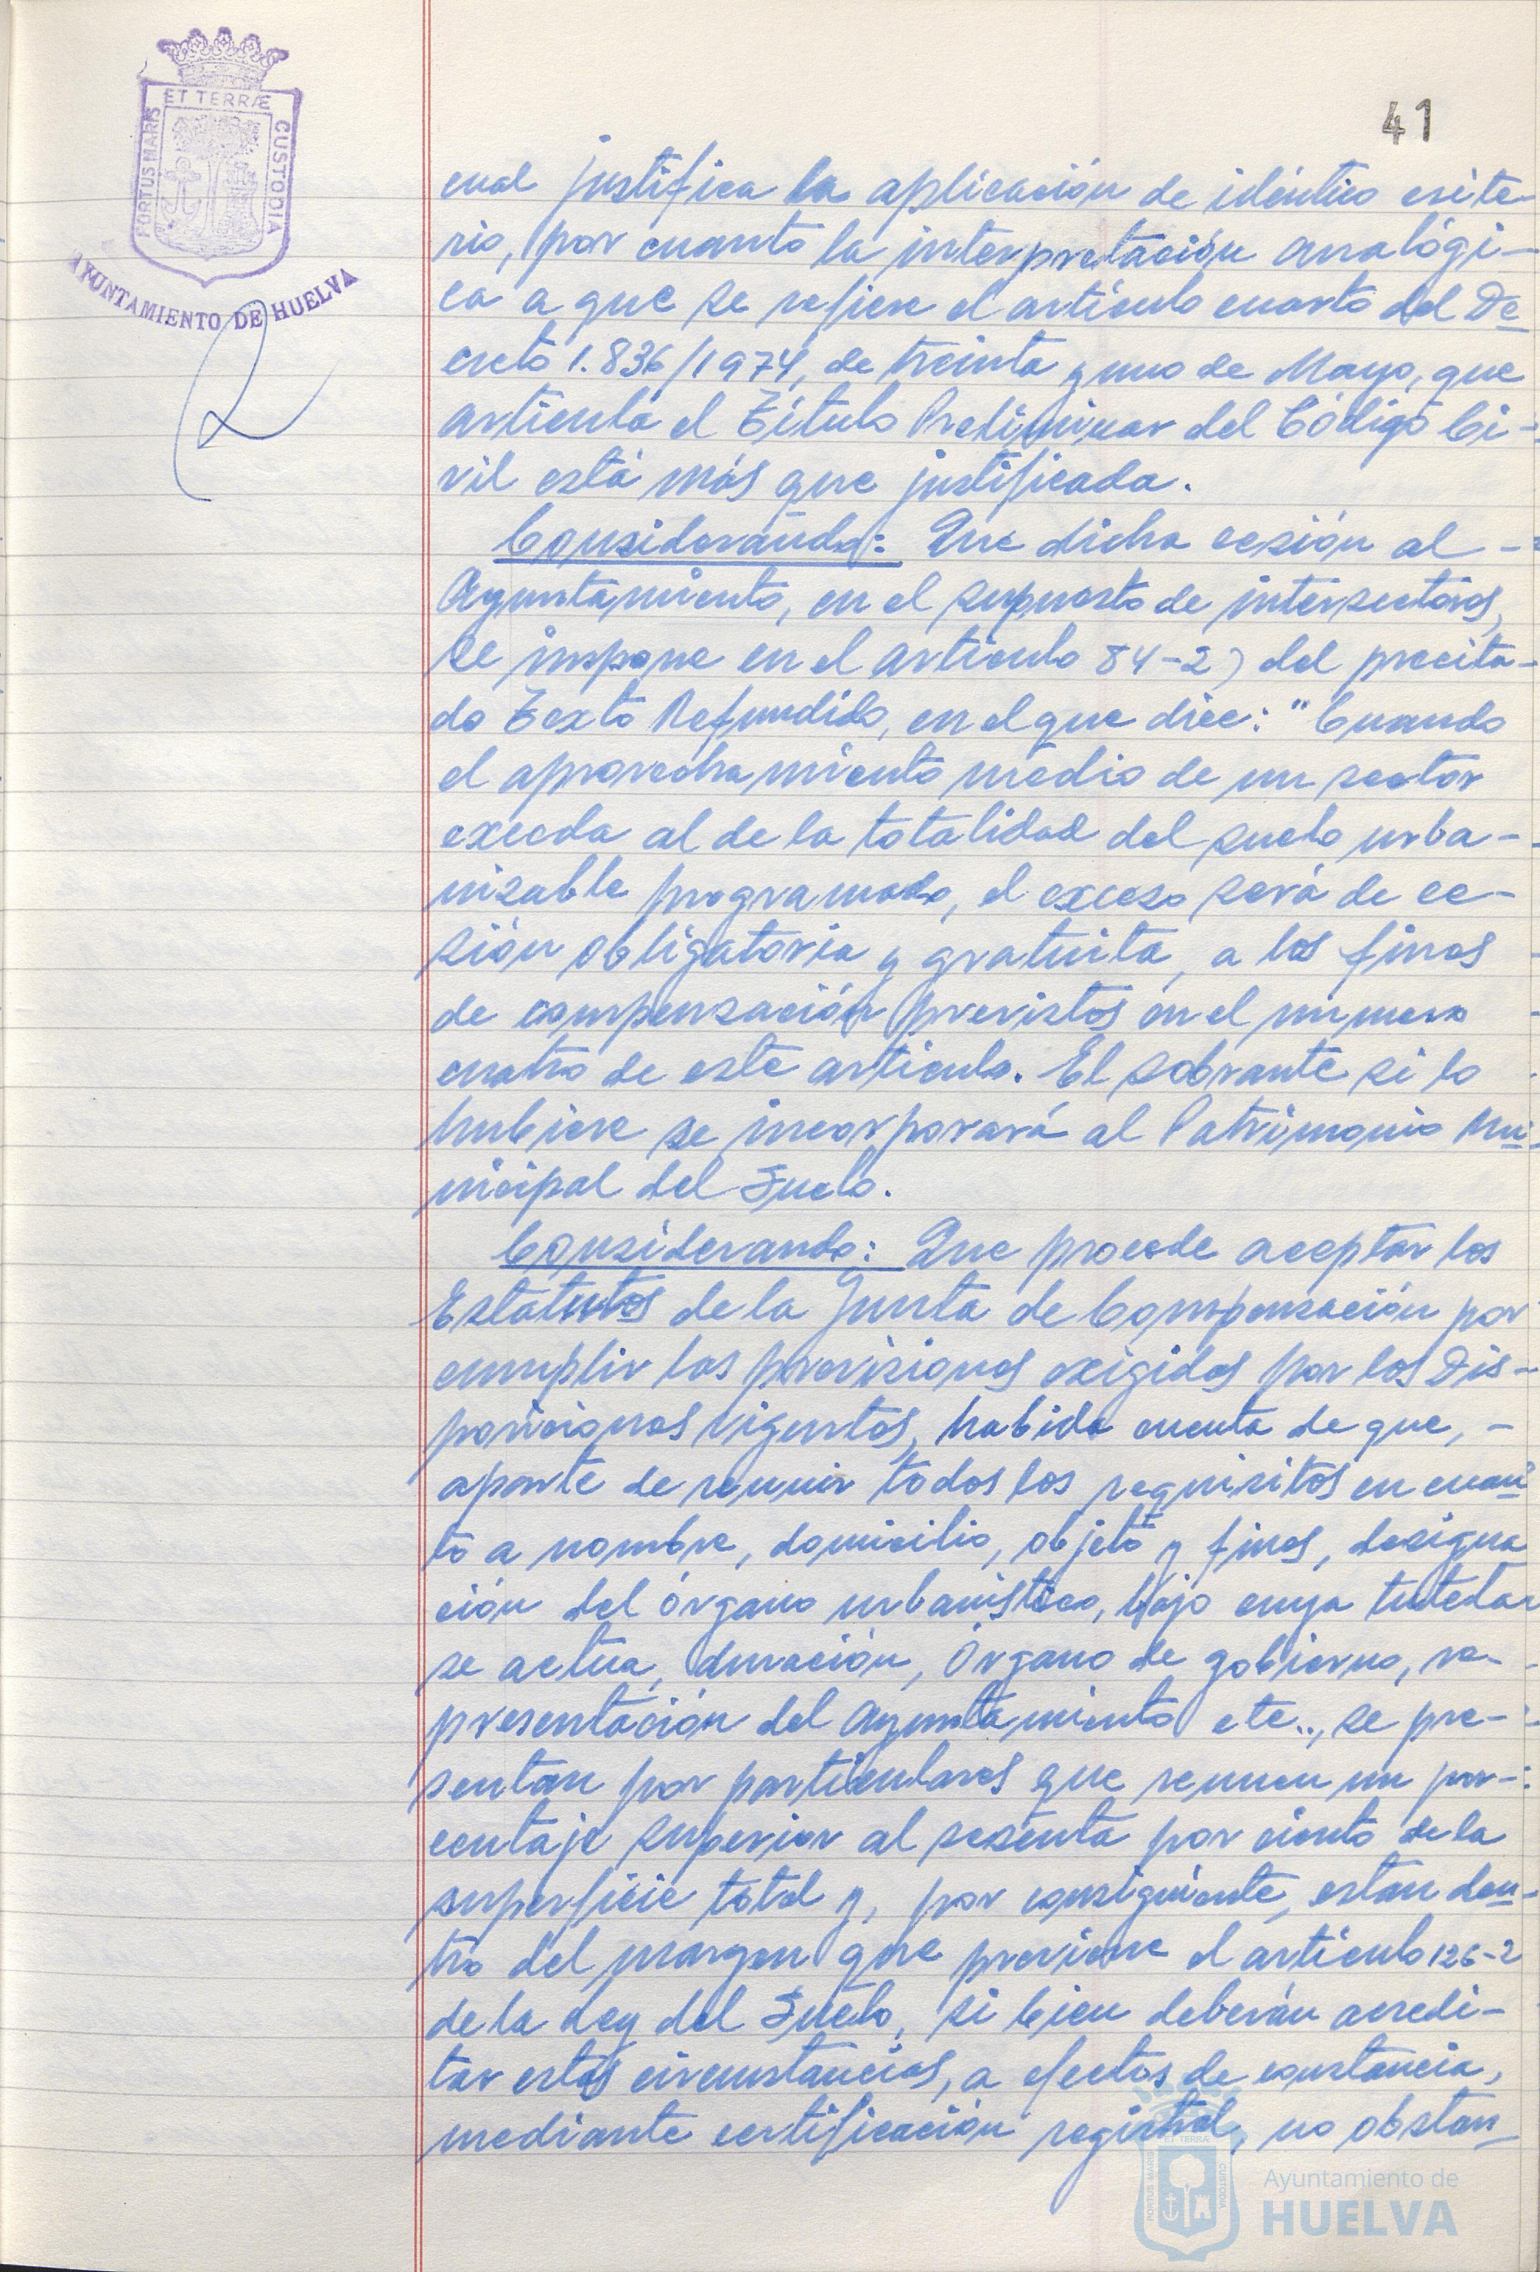 ET TERRÆ
PORTUS MARIS
CUSTODIA
AYUNTAMIENTO DE HUELVA
41
cual justifica la aplicación de idéntico crite-
rio, por cuanto la interpretación analógi-
ca a que se refiere el artículo cuarto del De-
creto 1.836/1974, de treinta y uno de Mayo, que
articula el Título Preliminar del Código Ci-
vil está más que justificada.
Considerando: Que dicha cesión al -
Ayuntamiento, en el supuesto de intersectores,
se impone en el artículo 84-2) del precita-
do Texto Refundido, en el que dice: "Cuando
el aprovechamiento medio de un sector
exceda al de la totalidad del suelo urba-
nizable programado, el exceso será de ce-
sión obligatoria y gratuita, a los fines
de compensación previstos en el numero
cuatro de este artículo. El sobrante si lo
hubiere se incorporará al Patrimonio Mu-
nicipal del Suelo.
Considerando: Que procede aceptar los
Estatutos de la Junta de Compensación por
cumplir las previsiones exigidas por las Dis-
posiciones vigentes, habida cuenta de que, -
aparte de reunir todos los requisitos en cuan-
to a nombre, domicilio, objeto y fines, designa
ción del órgano urbanístico, bajo cuya tutela
se actua, duración, Órgano de gobierno, re-
presentación del Ayuntamiento etc.., se pre-
sentan por particulares que reunen un por-
centaje superior al sesenta por ciento de la
superficie total y, por consiguiente, estan den-
tro del margen que previene el artículo 126-2
de la Ley del Suelo, si bien deberán acredi-
tar estas circunstancias, a efectos de constancia,
mediante certificación registral, no obstan-
ET TERRÆ
PORTUS MARIS
CUSTODIA
Ayuntamiento de
HUELVA